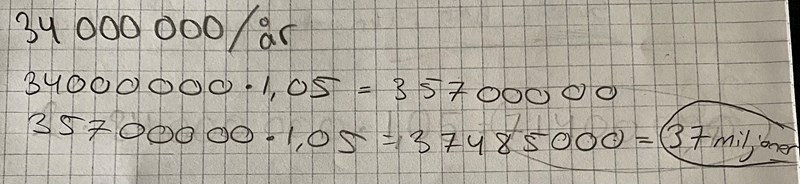 34 000 000/år
34000000 · 1,05 = 35700000
35700000 · 1,05 = 37485000 = 37 miljoner